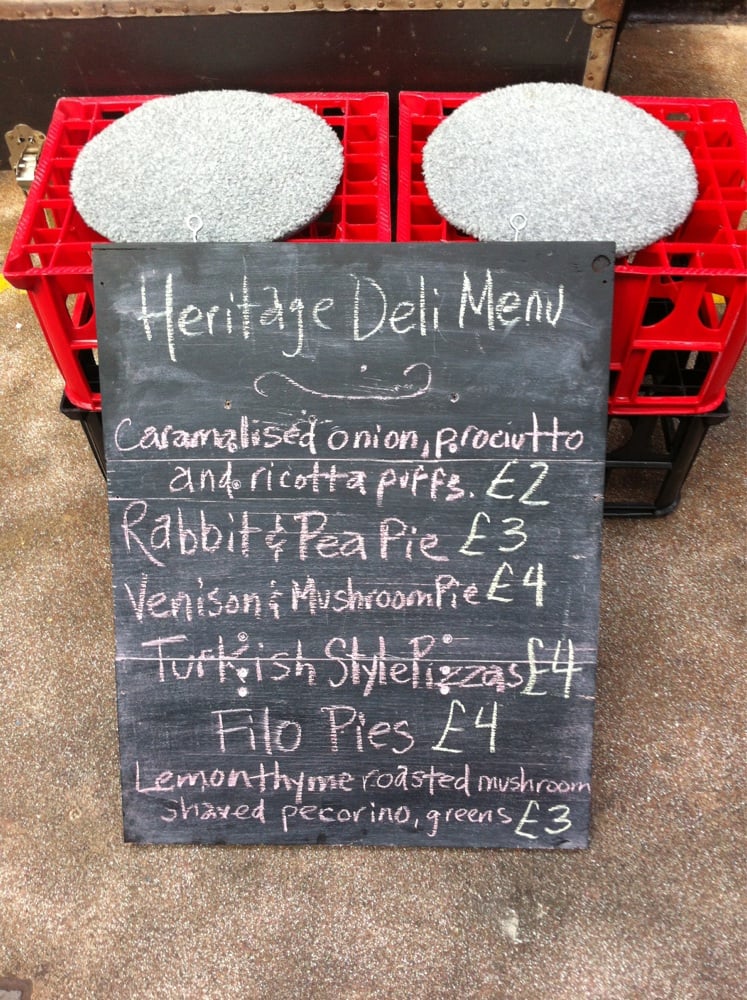 Heritage Deli Menu
Caramalised onion, prociutto
and ricotta puffs. £2
Rabbit & Pea Pie £3
Venison & Mushroom Pie £4
Turkish Style Pizzas £4
Filo Pies £4
Lemon thyme roasted mushroom
shaved pecorino, greens £3